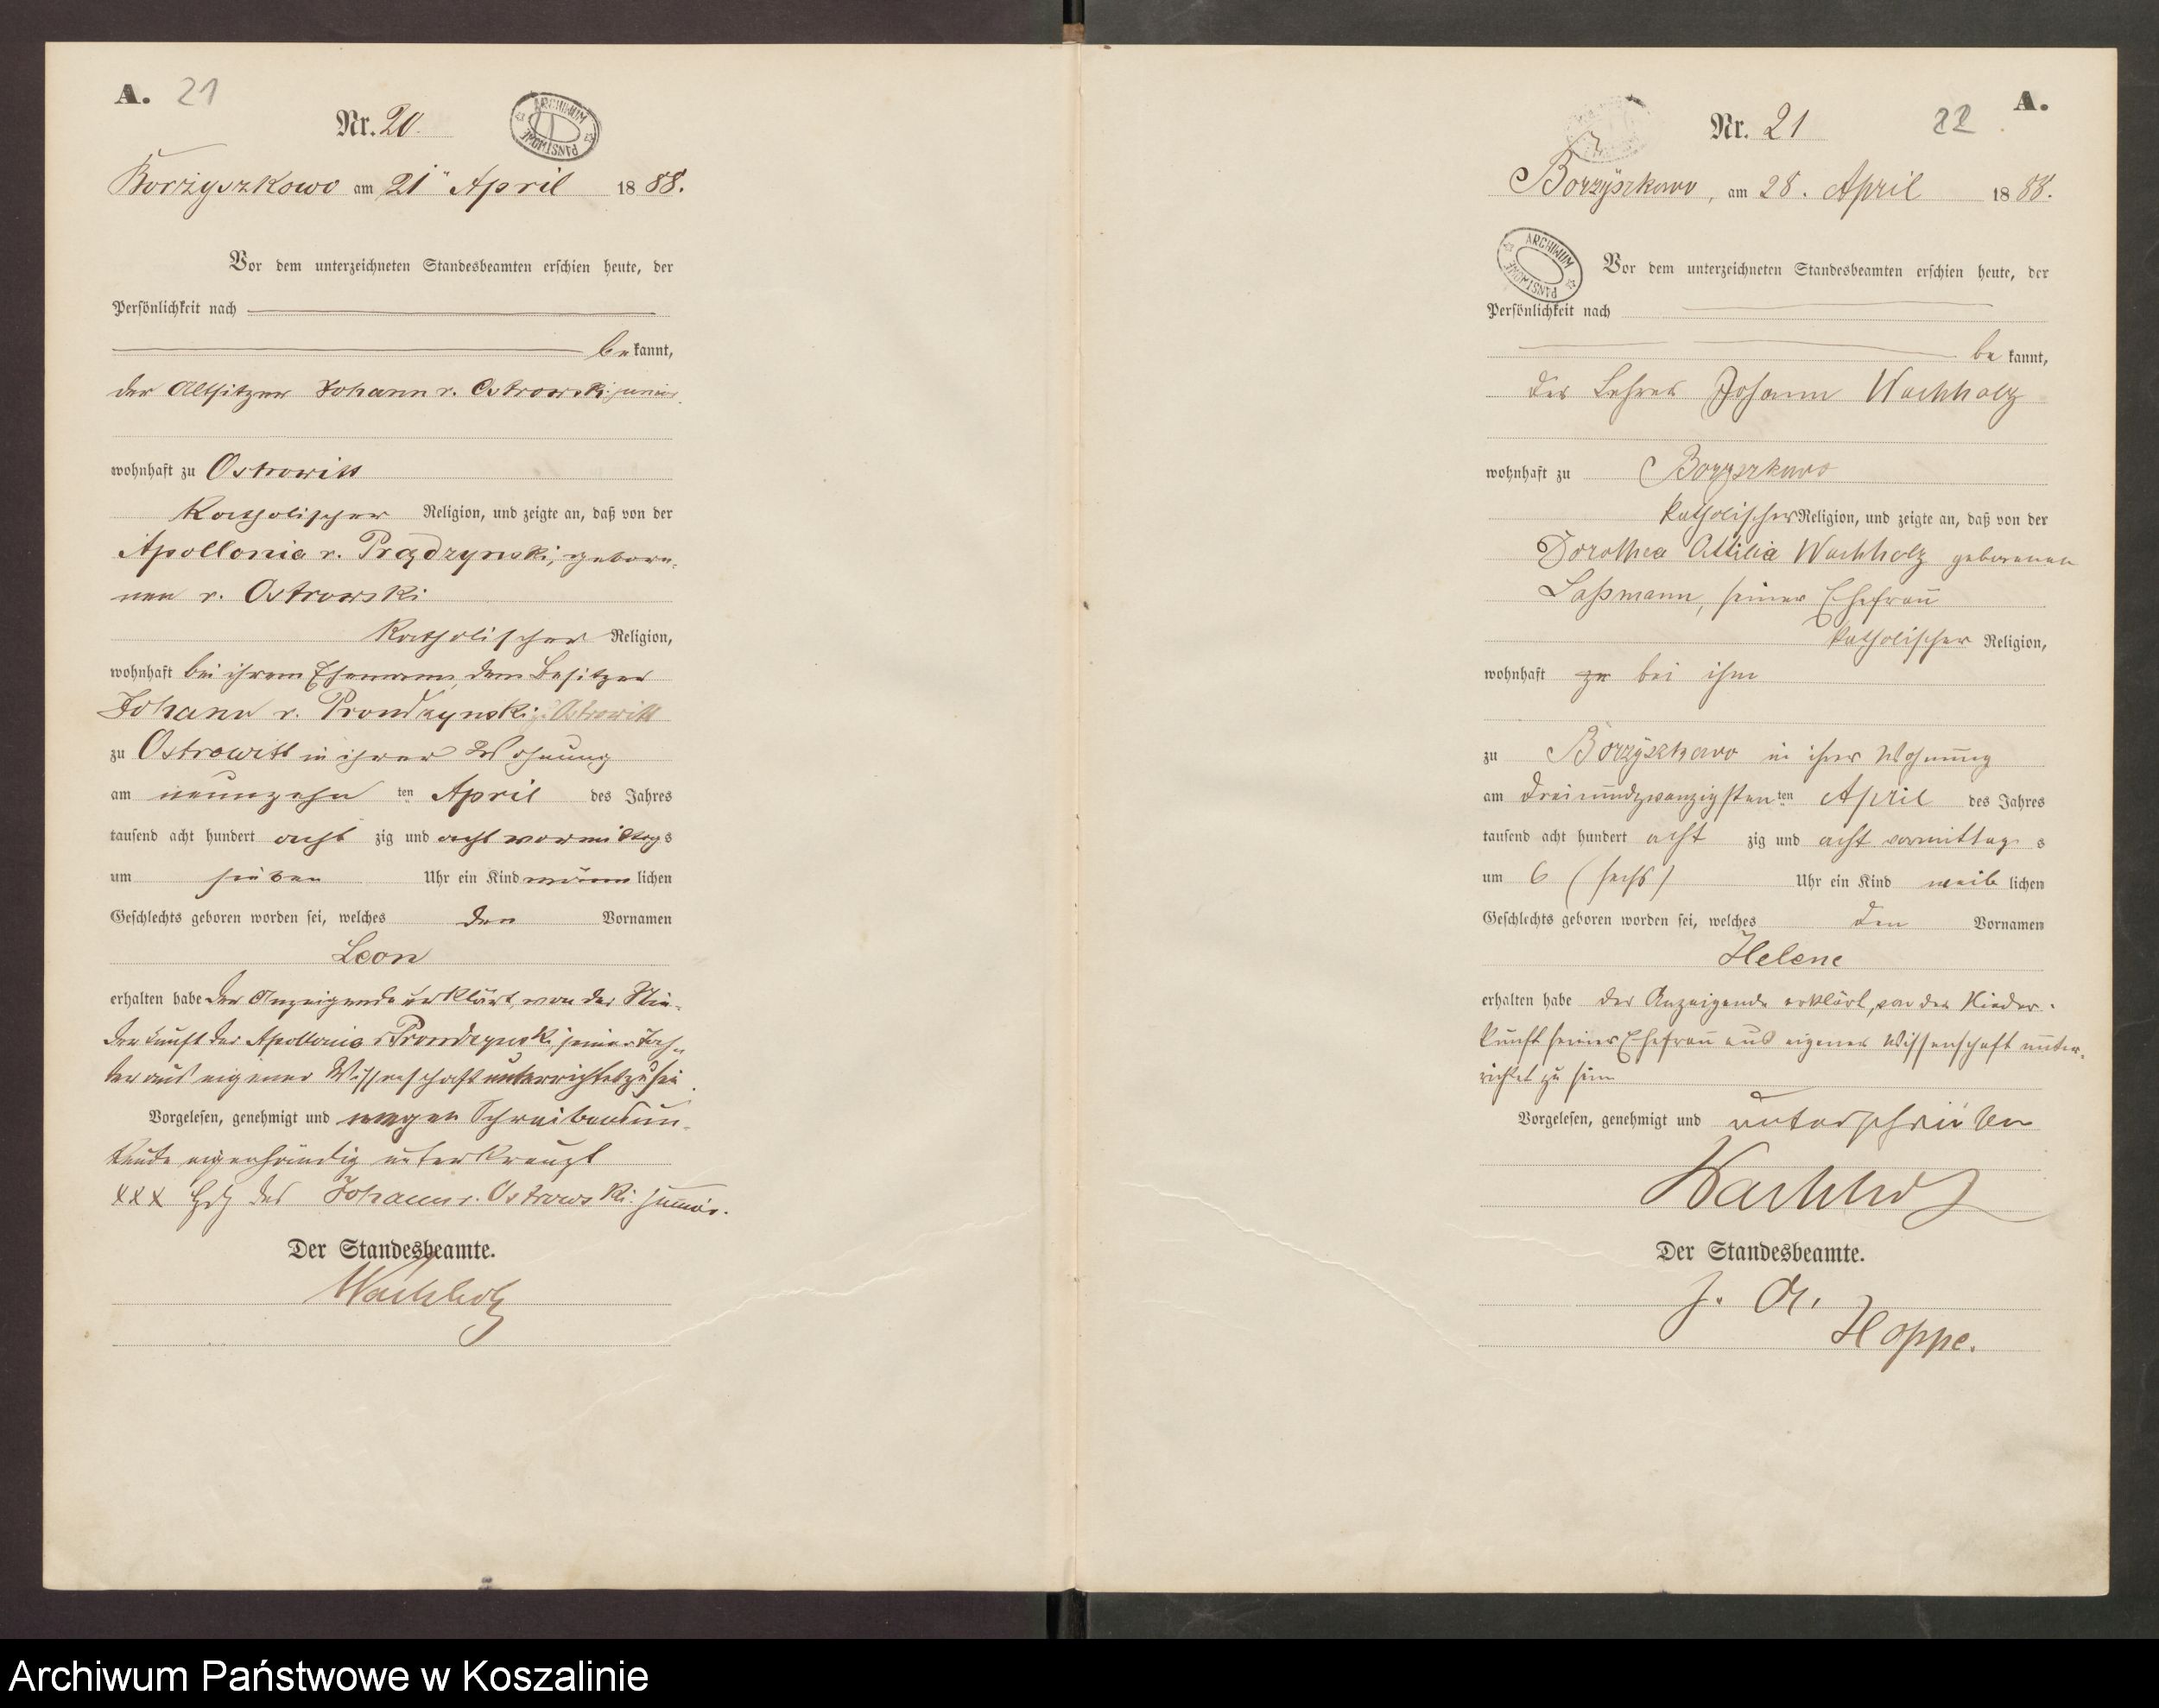 A. 21
Nr. 20.
ARCHIWUM PAŃSTWOWE
Borzyszkowo am 21ⁿ April 1888.
Vor dem unterzeichneten Standesbeamten erschien heute, der
Persönlichkeit nach
bekannt,
der Altsitzer Johann v. Ostrowski junior
wohnhaft zu Ostrowitt
katholischer Religion, und zeigte an, daß von der
Apollonia v. Prądzynski, gebore-
nen v. Ostrowski
katholischer Religion,
wohnhaft bei ihrem Ehemann, dem Besitzer
Johann v. Prondzynski Ostrowitt
zu Ostrowitt in ihrer Wohnung
am neunzehn ten April des Jahres
tausend acht hundert acht zig und acht vormittags
um sieben Uhr ein Kind männlichen
Geschlechts geboren worden sei, welches den Vornamen
Leon
erhalten habe der Anzeigende erklärt, von der Nie-
derkunft der Apollonia v Prondzynski, seiner Toch-
ter aus eigener Wissenschaft unterrichtet zu sei
Vorgelesen, genehmigt und wegen Schreibensun-
kunde eigenhändig unterkreuzt
XXX Hdz des Johann v. Ostrowski junior.
Der Standesbeamte.
Wachholz
A.
22
Nr. 21
Borzyszkowo, am 28. April 1888.
ARCHIWUM PAŃSTWOWE
Vor dem unterzeichneten Standesbeamten erschien heute, der
Persönlichkeit nach
bekannt,
der Lehrer Johann Wachholz
wohnhaft zu Borzyszkowo
katholischer Religion, und zeigte an, daß von der
Dorothea Ottilia Wachholz geborenen
Laßmann, seiner Ehefrau
katholischer Religion,
wohnhaft zu bei ihm
zu Borzyszkowo in ihrer Wohnung
am dreiundzwanzigsten ten April des Jahres
tausend acht hundert acht zig und acht vormittags
um 6 (sechs) Uhr ein Kind weiblichen
Geschlechts geboren worden sei, welches den Vornamen
Helene
erhalten habe der Anzeigende erklärt, von der Nieder-
kunft seiner Ehefrau aus eigener Wissenschaft unter-
richtet zu sein
Vorgelesen, genehmigt und unterschrieben
Wachholz
Der Standesbeamte.
J. A.
Hoppe.
Archiwum Państwowe w Koszalinie